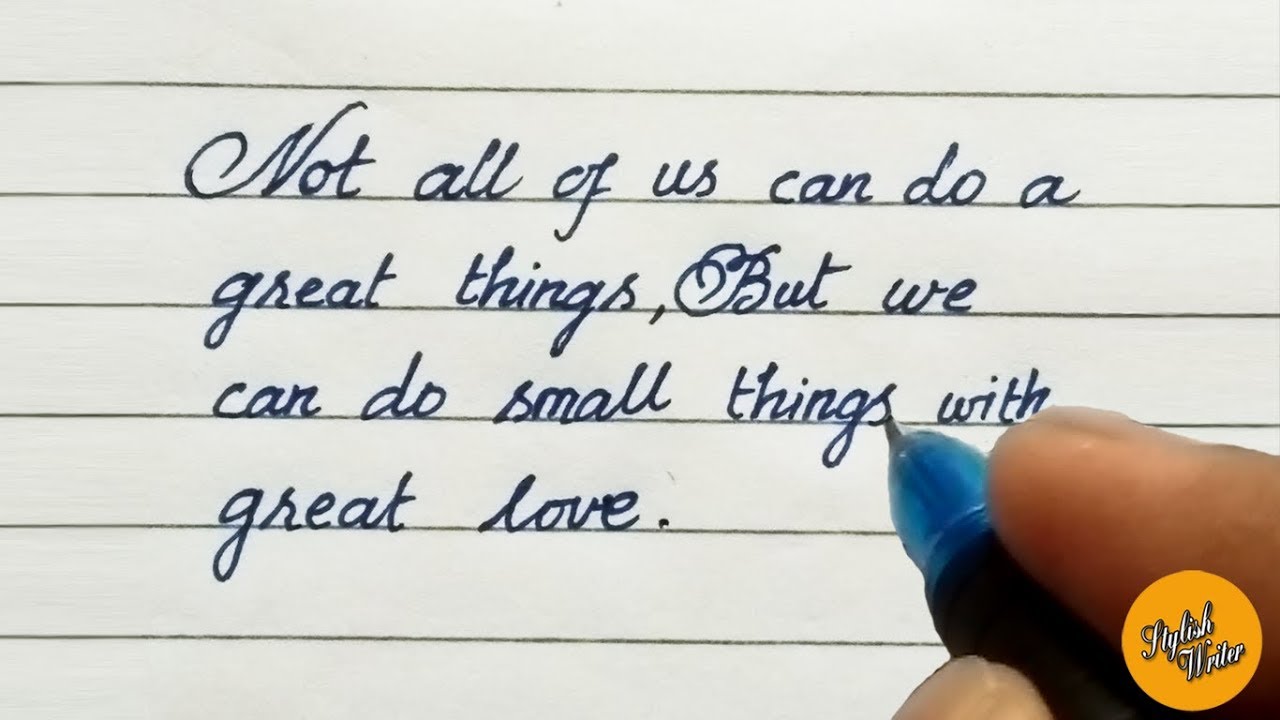 Not all of us can do a
great things, But we
can do small things with
great love.
Stylish
Writer